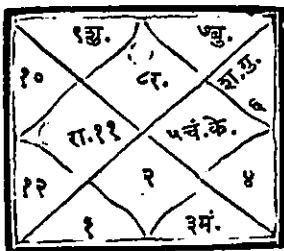 ९शु. ७बु.
१० ८र. श.गु.
६
रा.११ ५चं.के.
१२ २ ४
१ ३मं.